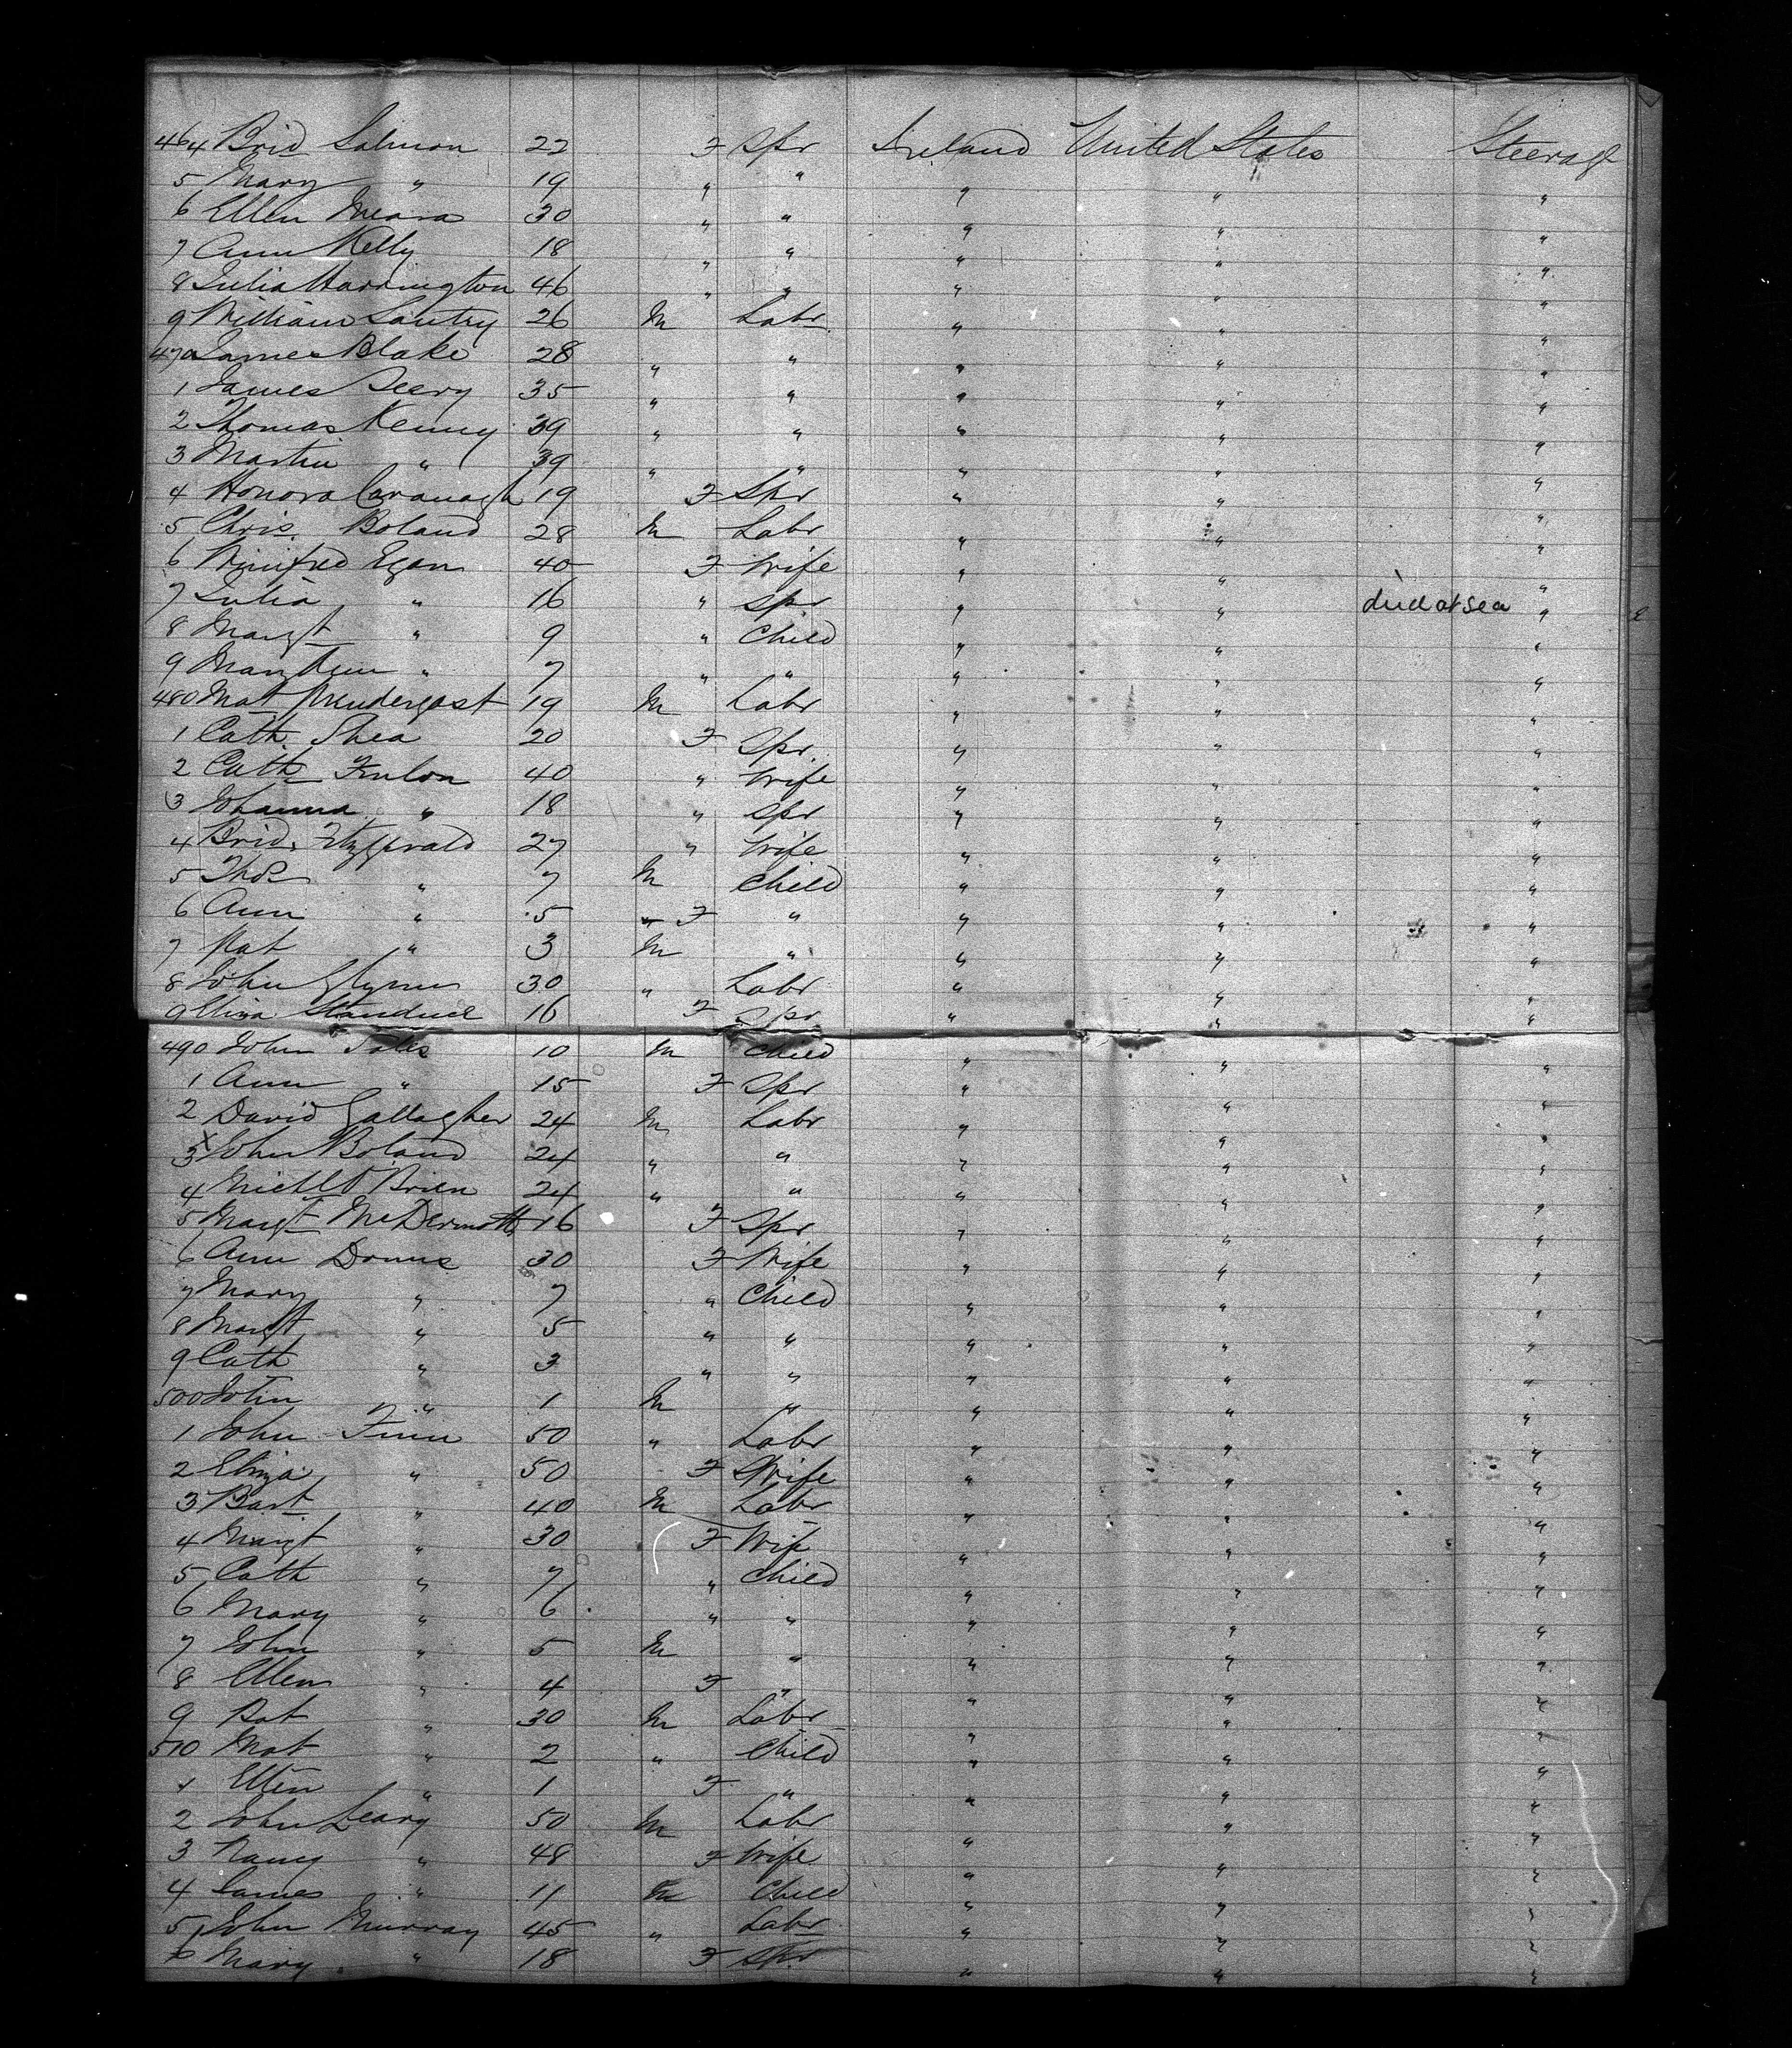 464 Brid Salmon 22 F Spr Ireland United States Steerage
5 Mary " 19 " " " " "
6 Ellen Meara 30 " " " " "
7 Ann Kelly 18 " " " " "
8 Julia Harrington 46 " " " " "
9 William Lantry 26 M Labr " " "
470 James Blake 28 " " " " "
1 James Seery 35 " " " " "
2 Thomas Kenny 39 " " " " "
3 Martin " 39 " " " " "
4 Honora Cavanagh 19 F Spr " " "
5 Chris. Boland 28 M Labr " " "
6 Winifred Egan 40 F Wife " " "
7 Julia " 16 " Spr " " died at sea "
8 Margt " 9 " Child " " "
9 Mary Ann " 7 " " " " "
480 Mat Prendergast 19 M Labr " " "
1 Cath Shea 20 F Spr " " "
2 Cath 40 " Wife " " "
3 Johanna " 18 " Spr " " "
4 Brid. Fitzgerald 27 " Wife " " "
5 Thos " 7 M Child " " "
6 Ann " 5 F " " " "
7 Pat " 3 M " " " "
8 John Glynn 30 " Labr " " "
9 Eliza 16 F Spr " " "
490 John 10 M Child " " "
1 Ann " 15 F Spr " " "
2 David Gallagher 24 M Labr " " "
3 x John Boland 24 " " " " "
4 Michl O Brien 24 " " " " "
5 Margt McDermott 16 F Spr " " "
6 Ann 30 F Wife " " "
7 Mary " 7 " Child " " "
8 Margt " 5 " " " " "
9 Cath " 3 " " " " "
500 John " 1 M " " " "
1 John Finn 50 " Labr " " "
2 Eliza " 50 F Wife " " "
3 Bart " 40 M Labr " " "
4 Margt " 30 F Wife " " "
5 Cath " 7 " Child " " "
6 Mary " 6 " " " " "
7 John " 5 M " " " "
8 Ellen " 4 F " " " "
9 Pat " 30 M Labr " " "
510 Mat " 2 " Child " " "
1 Ellen " 1 F " " " "
2 John Leary 50 M Labr " " "
3 Nancy " 48 F Wife " " "
4 James " 11 M Child " " "
5 John Murray 45 " Labr " " "
6 Mary " 18 F Spr " " "